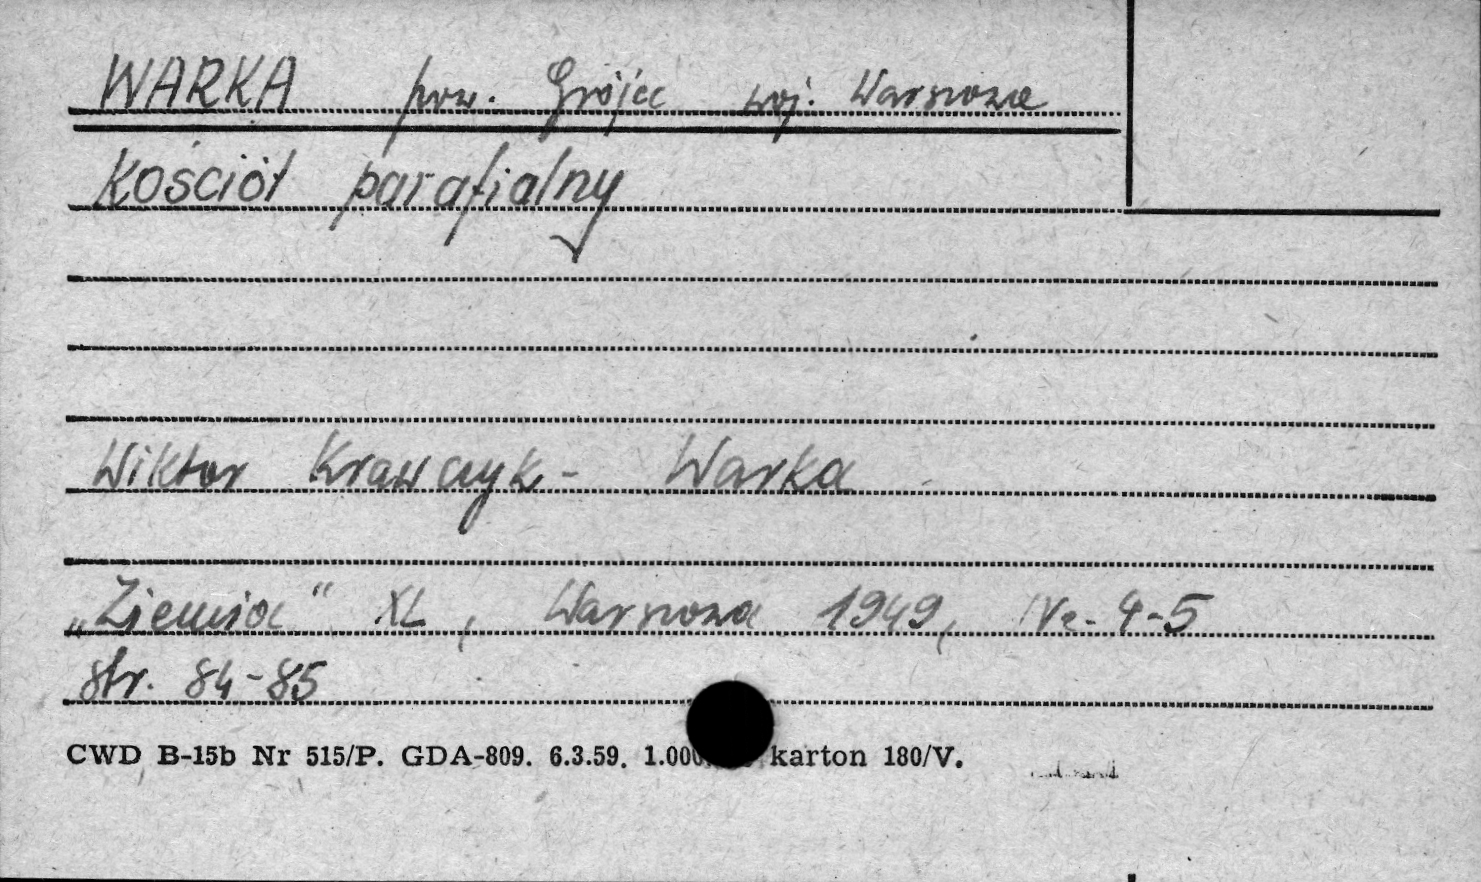 WARKA pow. Grójec woj. Warszawa
Kościół parafialny
Wiktor Krawczyk - Warka
„Ziemia" XL, Warszawa 1949, Nr. 4-5
str. 84-85
CWD B-15b Nr 515/P. GDA-809. 6.3.59. 1.000 karton 180/V.